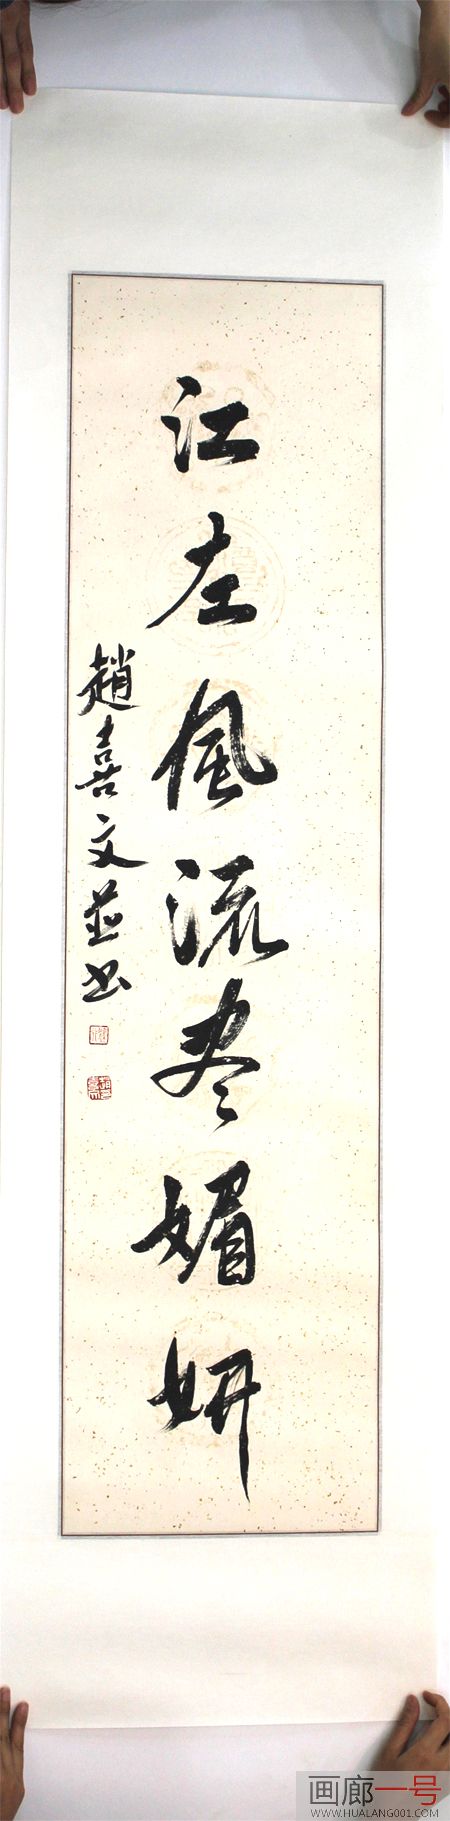 江左風流尽媚妍
趙喜文並书
画廊一号
WWW.HUALANG001.COM